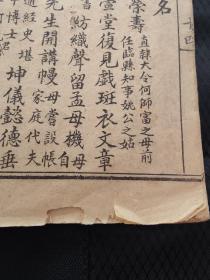 名
榮壽 直隸大令何師富之母前任臨縣知事姚公之姑
萱堂復見戲班衣文章
紡織聲留孟母機母自
先生開講幔母嘗設帳家庭代夫
經史堂坤儀懿德垂
博士